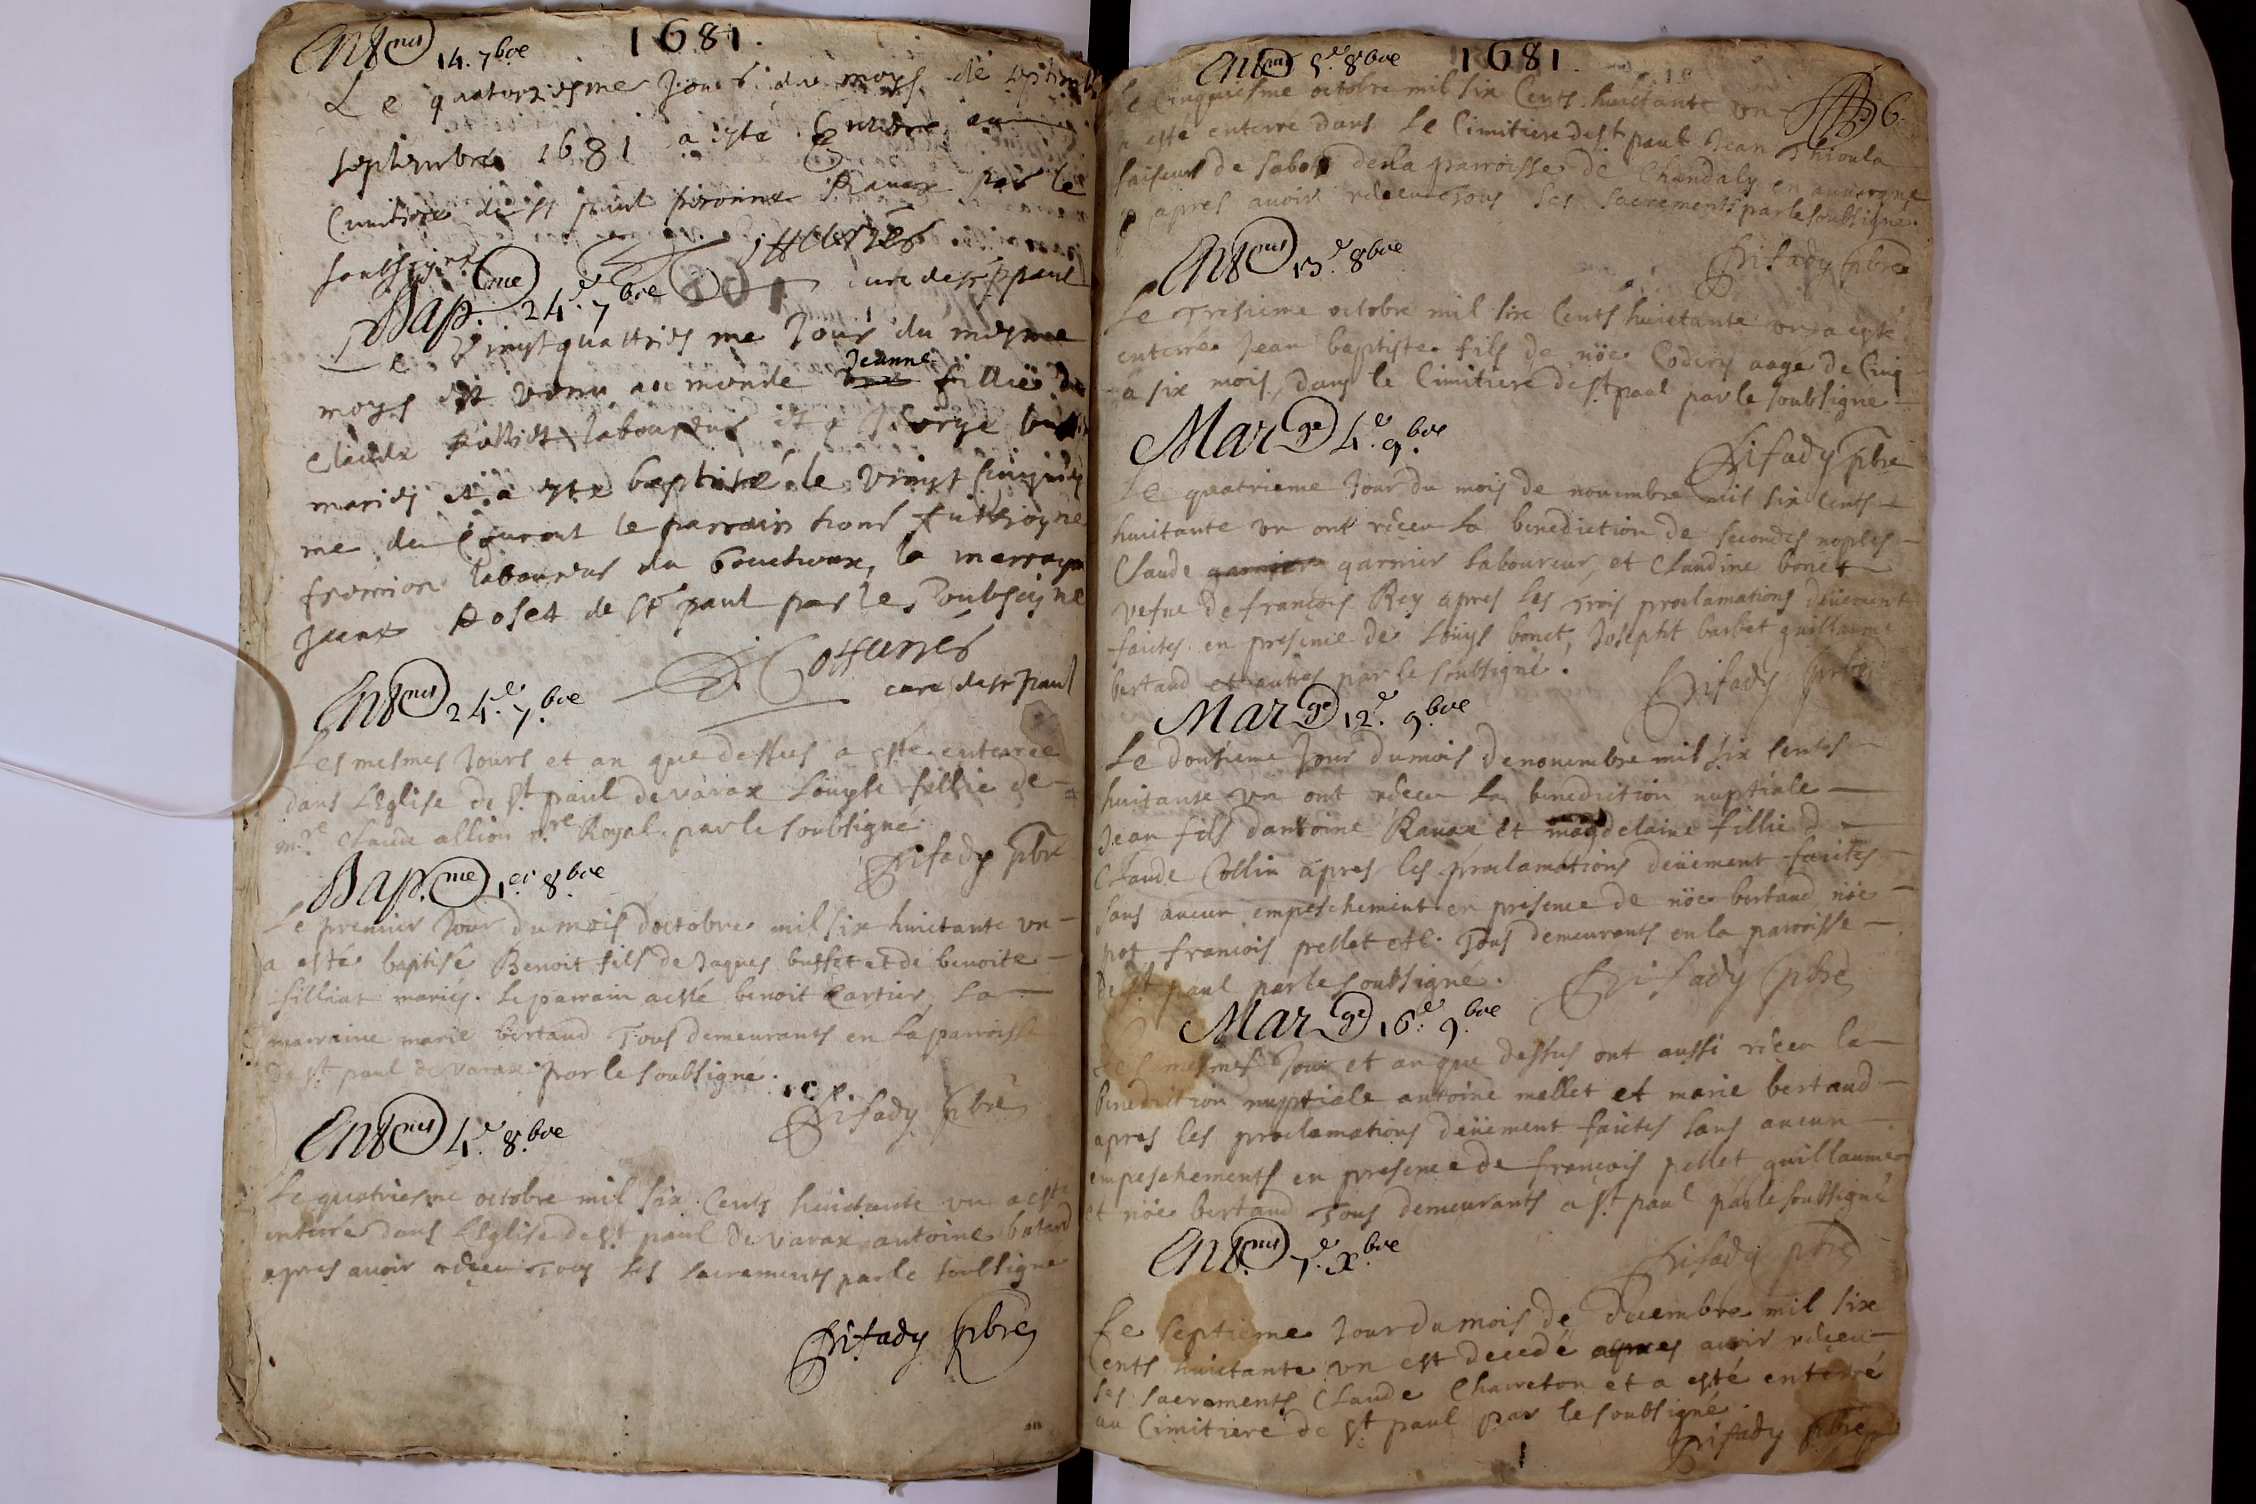 1681.
Ent.mt 14. 7bre
Le quatorziesme Jour du moys de
septembre 1681 a este Enterre au
Cimitiere de st paul pironne Ravax par le
soubsigné
cure de st paul
Bap.me 24.e 7bre
Le Vingt quattries me Jour du mesme
moys est venu au monde Jeanne fillie de
Claude laboureur et a
mariés et a este baptisé le vingt cinquies
me du Courant le parrain
laboureur du la marrayn
de st paul par le soubsigne
cure de st paul
Ent.mt 24.e 7.bre
Les mesmes Jours et an que dessus a este enterrée
dans L'Eglise de St paul de varax Louyse fillie de
m.re Claude allion n.re Royal par le soubsigné
Trifady pbre
Bap.me 1.er 8.bre
Le premier Jour du mois doctobre mil six huictante un
a esté baptisé Benoit fils de Jaques buffet et de benoite
filliat mariés. le parrain a esté benoit Cartier, La
marraine marie bertaud Tous demeurants en La parroisse
de St paul de varax par le soubsigné.
Trifady pbre
Ent.mt 4.e 8.bre
Le quatriesme octobre mil six Cents huictante un a esté
enterré dans L'Eglise de St paul de varax antoine
apres avoir receu Tous Les sacrements par le soubsigne
Trifady pbre
1681.
Ent.mt 5.e 8bre
6.
Le Cinquiesme octobre mil six Cents huictante un
a esté enterré dans Le Cimitiere de St paul Jean Thioula
faiseur de sabot de la parroisse de Chandaly en auvergne
apres avoir receu Tous Les sacrements par le soubsigné.
Trifady pbre
Ent.mt 13.e 8bre
Le Tresieme octobre mil six Cents huictante un a esté
enterré Jean baptiste fils de nöe Coders aage de Cinq
a six mois, dans le Cimitiere de St paul par le soubsigné
Trifady pbre
Mar.ge 4.e 9.bre
Le quatrieme Jour du mois de novembre mil six cents
huitante un ont receu La benediction de secondes noples
Claude garnier garnier Laboureur, et Claudine bonet
vefue de françois Rey apres Les Trois proclamations deüement
faictes en presence de Loüys bonet, Josepht barbet guillaume
bertaud et autres par le soubsigné.
Trifady pbre
Mar.ge 12.e 9.bre
Le dousieme Jour du mois de novembre mil six cents
huitante un ont receu La benediction nuptiale
Jean fils dantoine Ravax et magdelaine fillie de
Claude Collin apres les proclamations deüement faictes
sans aucun empeschement en presence de nöe bertaud nöe
pot francois pellet etc. Tous demeurants en la parroisse
de St paul par le soubsigné.
Trifady pbre
Mar.ge 16.e 9.bre
Les mesmes Jour et an que dessus ont aussi receu la
Benediction nuptiale antoine mellet et marie bertaud
apres les proclamations deüement faictes sans aucun
empeschements en presence de françois pellet guillaume
et nöe bertaud Tous demeurants a St paul par le soubsigné
Trifady pbre
Ent.mt 7.e X.bre
Le septieme Jour du mois de decembre mil six
Cents huictante un est decedé apres avoir receu
Les sacrements Claude Charreton et a esté enterré
au Cimitiere de St paul par le soubsigné.
Trifady pbre